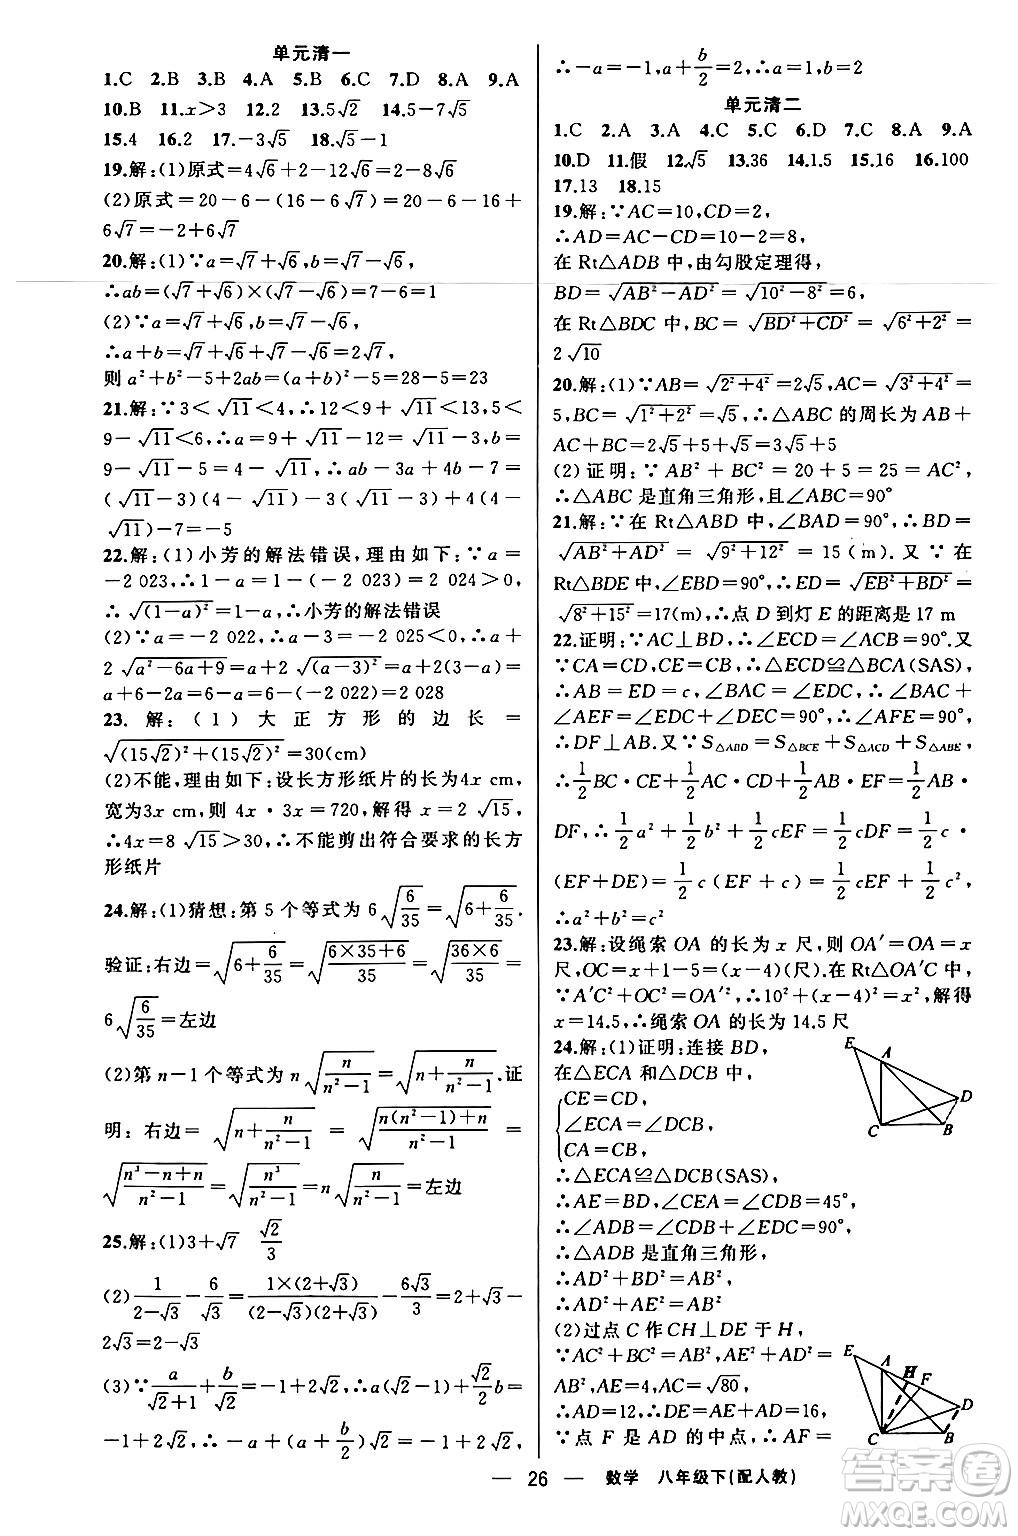 单元清一
1.C 2.B 3.B 4.A 5.B 6.C 7.D 8.A 9.A
10.B 11.x>3 12.2 13.5√2 14.5-7√5
15.4 16.2 17.-3√5 18.√5-1
19.解:(1)原式=4√6+2√6-12√6=-6√6
(2)原式=20-6-(16-6√7)=20-6-16+
6√7=-2+6√7
20.解:(1)∵a=√7+√6,b=√7-√6,
∴ab=(√7+√6)×(√7-√6)=7-6=1
(2)∵a=√7+√6,b=√7-√6,
∴a+b=√7+√6+√7-√6=2√7,
则a²+b²-5+2ab=(a+b)²-5=28-5=23
21.解:∵3<√11<4,∴12<9+√11<13,5<
9-√11<6,∴a=9+√11-12=√11-3,b=
9-√11-5=4-√11,∴ab-3a+4b-7=
(√11-3)(4-√11)-3(√11-3)+4(4-
√11)-7=-5
22.解:(1)小芳的解法错误,理由如下:∵a=
-2 023,∴1-a=1-(-2 023)=2 024>0,
∴√((1-a)²)=1-a,∴小芳的解法错误
(2)∵a=-2 022,∴a-3=-2 025<0,∴a+
2√(a²-6a+9)=a+2√((a-3)²)=a+2(3-a)=
a+6-2a=6-a=6-(-2 022)=2 028
23.解:(1)大正方形的边长=
√((15√2)²+(15√2)²)=30(cm)
(2)不能,理由如下:设长方形纸片的长为4x cm,
宽为3x cm,则4x·3x=720,解得x=2√15,
∴4x=8√15>30,∴不能剪出符合要求的长方
形纸片
24.解:(1)猜想:第5个等式为6√(6/35)=√(6+6/35).
验证:右边=√(6+6/35)=√((6×35+6)/35)=√((36×6)/35)=
6√(6/35)=左边
(2)第n-1个等式为n√(n/(n²-1))=√(n+n/(n²-1)).证
明:右边=√(n+n/(n²-1))=√((n(n²-1)+n)/(n²-1))=
√((n³-n+n)/(n²-1))=√(n³/(n²-1))=n√(n/(n²-1))=左边
25.解:(1)3+√7 √2/3
(2)1/(2-√3)-6/√3=(1×(2+√3))/((2-√3)(2+√3))-6√3/3=2+√3-
2√3=2-√3
(3)∵a/(√2+1)+b/√2=-1+2√2,∴a(√2-1)+(√2/2)b=
-1+2√2,∴-a+(a+b/2)√2=-1+2√2,
∴-a=-1,a+b/2=2,∴a=1,b=2
单元清二
1.C 2.A 3.A 4.C 5.C 6.D 7.C 8.A 9.A
10.D 11.假 12.√5 13.36 14.1.5 15.16 16.100
17.13 18.15
19.解:∵AC=10,CD=2,
∴AD=AC-CD=10-2=8,
在Rt△ADB中,由勾股定理得,
BD=√(AB²-AD²)=√(10²-8²)=6,
在Rt△BDC中,BC=√(BD²+CD²)=√(6²+2²)=
2√10
20.解:(1)∵AB=√(2²+4²)=2√5,AC=√(3²+4²)=
5,BC=√(1²+2²)=√5,∴△ABC的周长为AB+
AC+BC=2√5+5+√5=3√5+5
(2)证明:∵AB²+BC²=20+5=25=AC²,
∴△ABC是直角三角形,且∠ABC=90°
21.解:∵在Rt△ABD中,∠BAD=90°,∴BD=
√(AB²+AD²)=√(9²+12²)=15(m).又∵在
Rt△BDE中,∠EBD=90°,∴ED=√(EB²+BD²)=
√(8²+15²)=17(m),∴点D到灯E的距离是17 m
22.证明:∵AC⊥BD,∴∠ECD=∠ACB=90°.又
∵CA=CD,CB=CE,∴△ECD≌△BCA(SAS),
∴AB=ED=c,∠BAC=∠EDC.又∵∠BAC+
∠AEF=∠EDC+∠DEC=90°,∴∠AFE=90°,
∴DF⊥AB.又∵S△ABD=S△BCE+S△ACD+S△ABE,
∴1/2BC·CE+1/2AC·CD+1/2AB·EF=1/2AB·
DF,∴1/2a²+1/2b²+1/2cEF=1/2cDF=1/2c·
(EF+DE)=1/2c(EF+c)=1/2cEF+1/2c²,
∴a²+b²=c²
23.解:设绳索OA的长为x尺,则OA′=OA=x
尺,OC=x+1-5=(x-4)(尺).在Rt△OA′C中,
∵A′C²+OC²=OA′²,∴10²+(x-4)²=x²,解得
x=14.5,∴绳索OA的长为14.5尺
24.解:(1)证明:连接BD,
在△ECA和△DCB中,
{CE=CD,
∠ECA=∠DCB,
CA=CB,
∴△ECA≌△DCB(SAS),
∴AE=BD,∠CEA=∠CDB=45°,
∴∠ADB=∠CDB+∠EDC=90°,
∴△ADB是直角三角形,
∴AD²+BD²=AB²,
∴AD²+AE²=AB²
(2)过点C作CH⊥DE于H,
∵AC²+BC²=AB²,AD²+AE²=
AB²,AE=4,AC=√80,
∴AD=12,∴DE=AE+AD=16,
∵点F是AD的中点,∴AF=
E A D C B
E A H F D C B
— 26 — 数学 八年级下(配人教)
答案圈
MXQE.COM